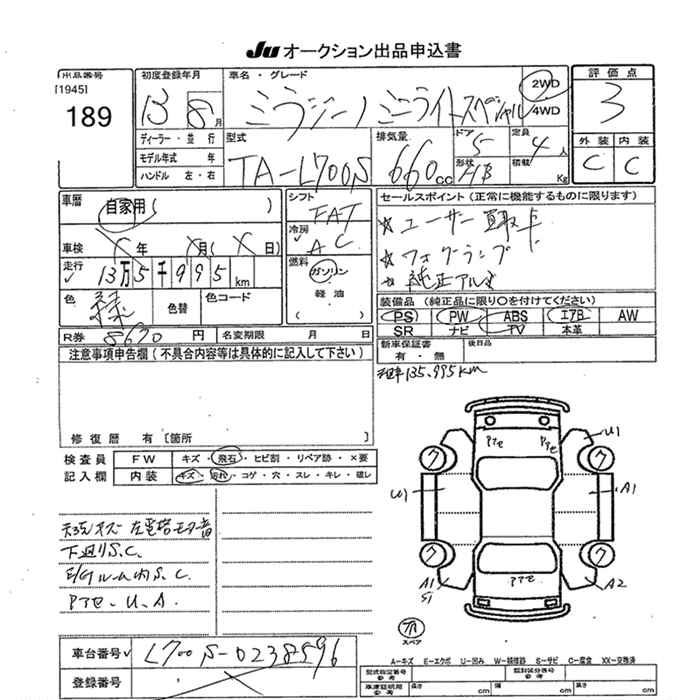 JU オークション出品申込書
出品番号
[1945]
189
初度登録年月
13 8月
ディーラー・並行
モデル年式 年
ハンドル 左・右
車名・グレード
ミラジーノ ミニライトスペシャル
2WD
4WD
型式
TA-L700S
排気量
660cc
ドア
5
形状
HB
定員
4人
積載
Kg
評価点
3
外装 内装
C C
車歴
自家用( )
車検 年 月( 日)
走行
13万5千995km
色
緑
色替
色コード
R券 8630円 名変期限 月 日
シフト
FAT
冷房
AC
燃料
ガソリン
軽油
( )
セールスポイント(正常に機能するものに限ります)
☆ユーザー買取車
☆フォグランプ
☆純正アルミ
装備品(純正品に限り〇を付けてください)
PS PW ABS エアB AW
SR ナビ TV 本革
新車保証書
有・無
後日品
注意事項申告欄(不具合内容等は具体的に記入して下さい)
135,995km
修復歴 有〔箇所 〕
検査員
記入欄
FW キズ・飛石・ヒビ割・リペア跡・×要
内装 キズ・汚れ・コゲ・穴・スレ・キレ・破レ
下廻りS.C.
E/Gルーム内S.C.
PアセーU.A.
Pアセ Pアセ
U1
ワ ワ
U1 A1
ワ ワ
A1
S1
Pアセ
A2
スペア
車台番号 L700S-0238596
登録番号
A―キズ E―エクボ U―凹み W―補修跡 S―サビ C―腐食 XX―交換済
型式指定番号
参考
類別区分番号
参考
長さ cm 幅 cm 高さ cm